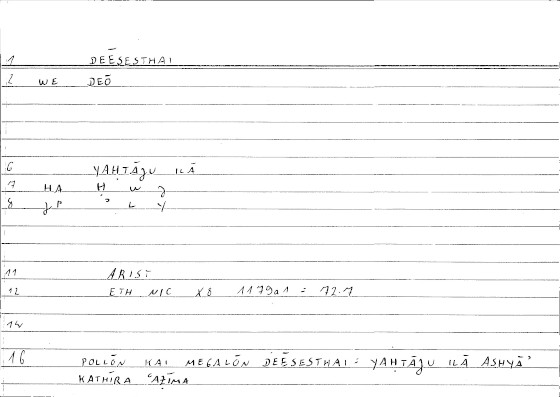 1 DEĒSESTHAI
2 WE DEŌ
6 YAḤTĀJU ILĀ
7 HA Ḥ W J
8 JP ʾ L Y
11 ARIST
12 ETH NIC X8 1179a1 = 72.7
14
16 POLLŌN KAI MEGALŌN DEĒSESTHAI = YAḤTĀJU ILĀ ASHYĀʾ
KATHĪRA ʿAẒĪMA